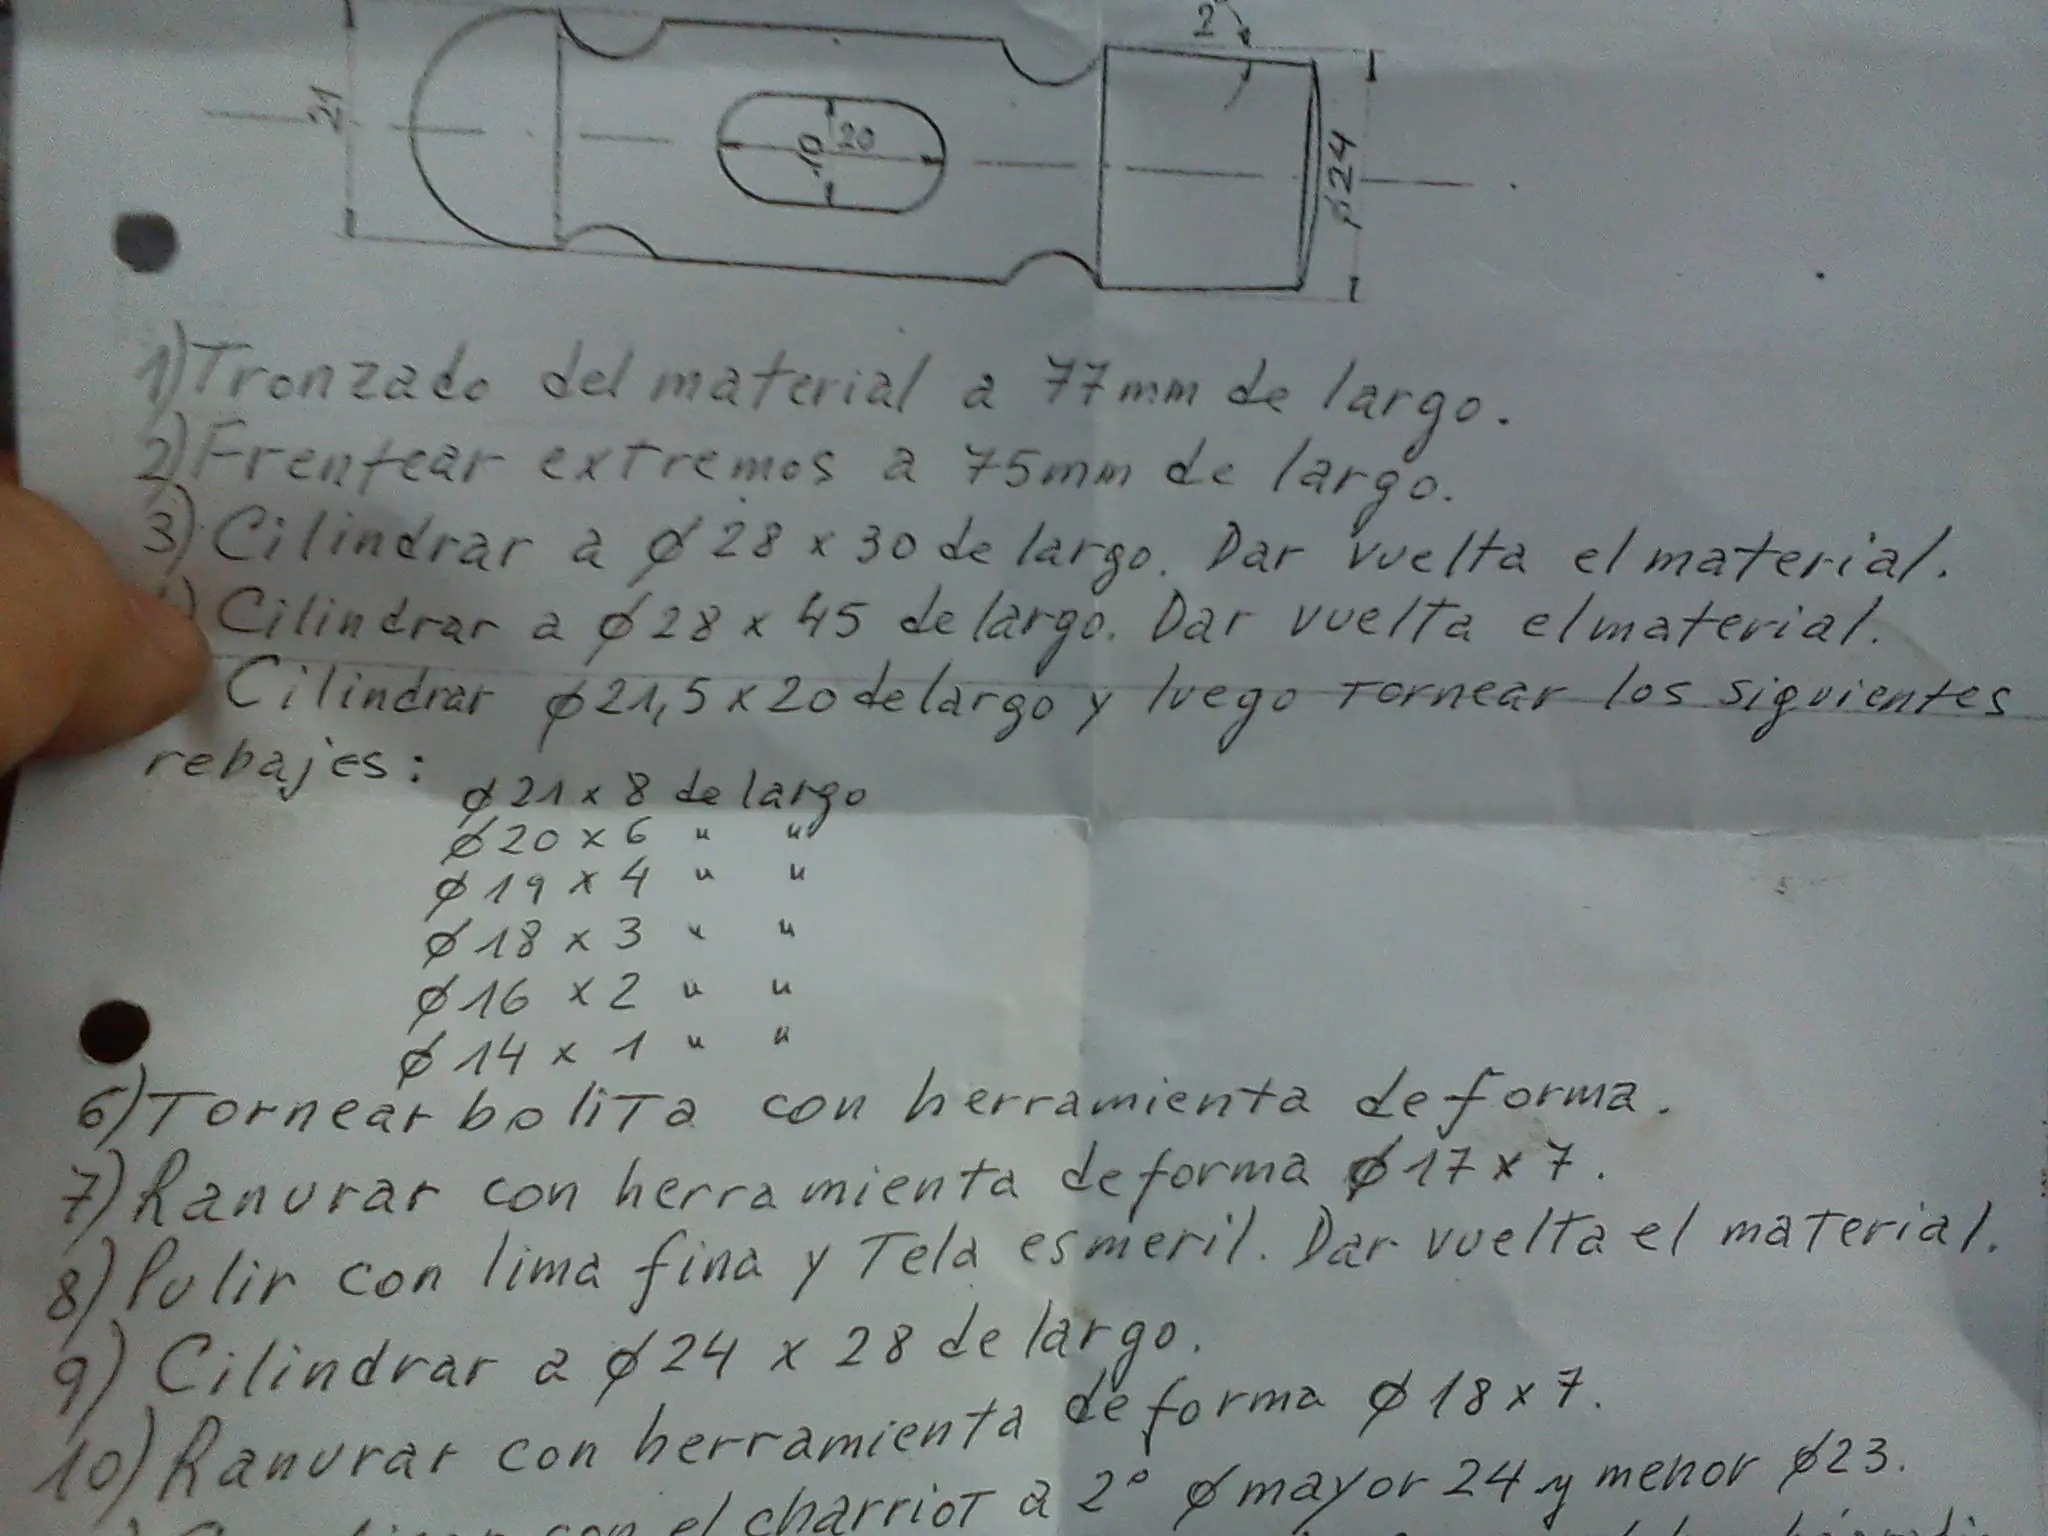 2°
21
20
10
ø24
1) Tronzado del material a 77mm de largo.
2) Frentear extremos a 75mm de largo.
3) Cilindrar a ø28 x 30 de largo. Dar vuelta el material.
) Cilindrar a ø28 x 45 de largo. Dar vuelta el material.
Cilindrar ø21,5 x 20 de largo y luego tornear los siguientes
rebajes:
ø21 x 8 de largo
ø20 x 6 " "
ø19 x 4 " "
ø18 x 3 " "
ø16 x 2 " "
ø14 x 1 " "
6) Tornear bolita con herramienta de forma.
7) Ranurar con herramienta de forma ø17 x 7.
8) Pulir con lima fina y Tela esmeril. Dar vuelta el material.
9) Cilindrar a ø24 x 28 de largo.
10) Ranurar con herramienta de forma ø18 x 7.
con el charriot a 2° ø mayor 24 y menor ø23.